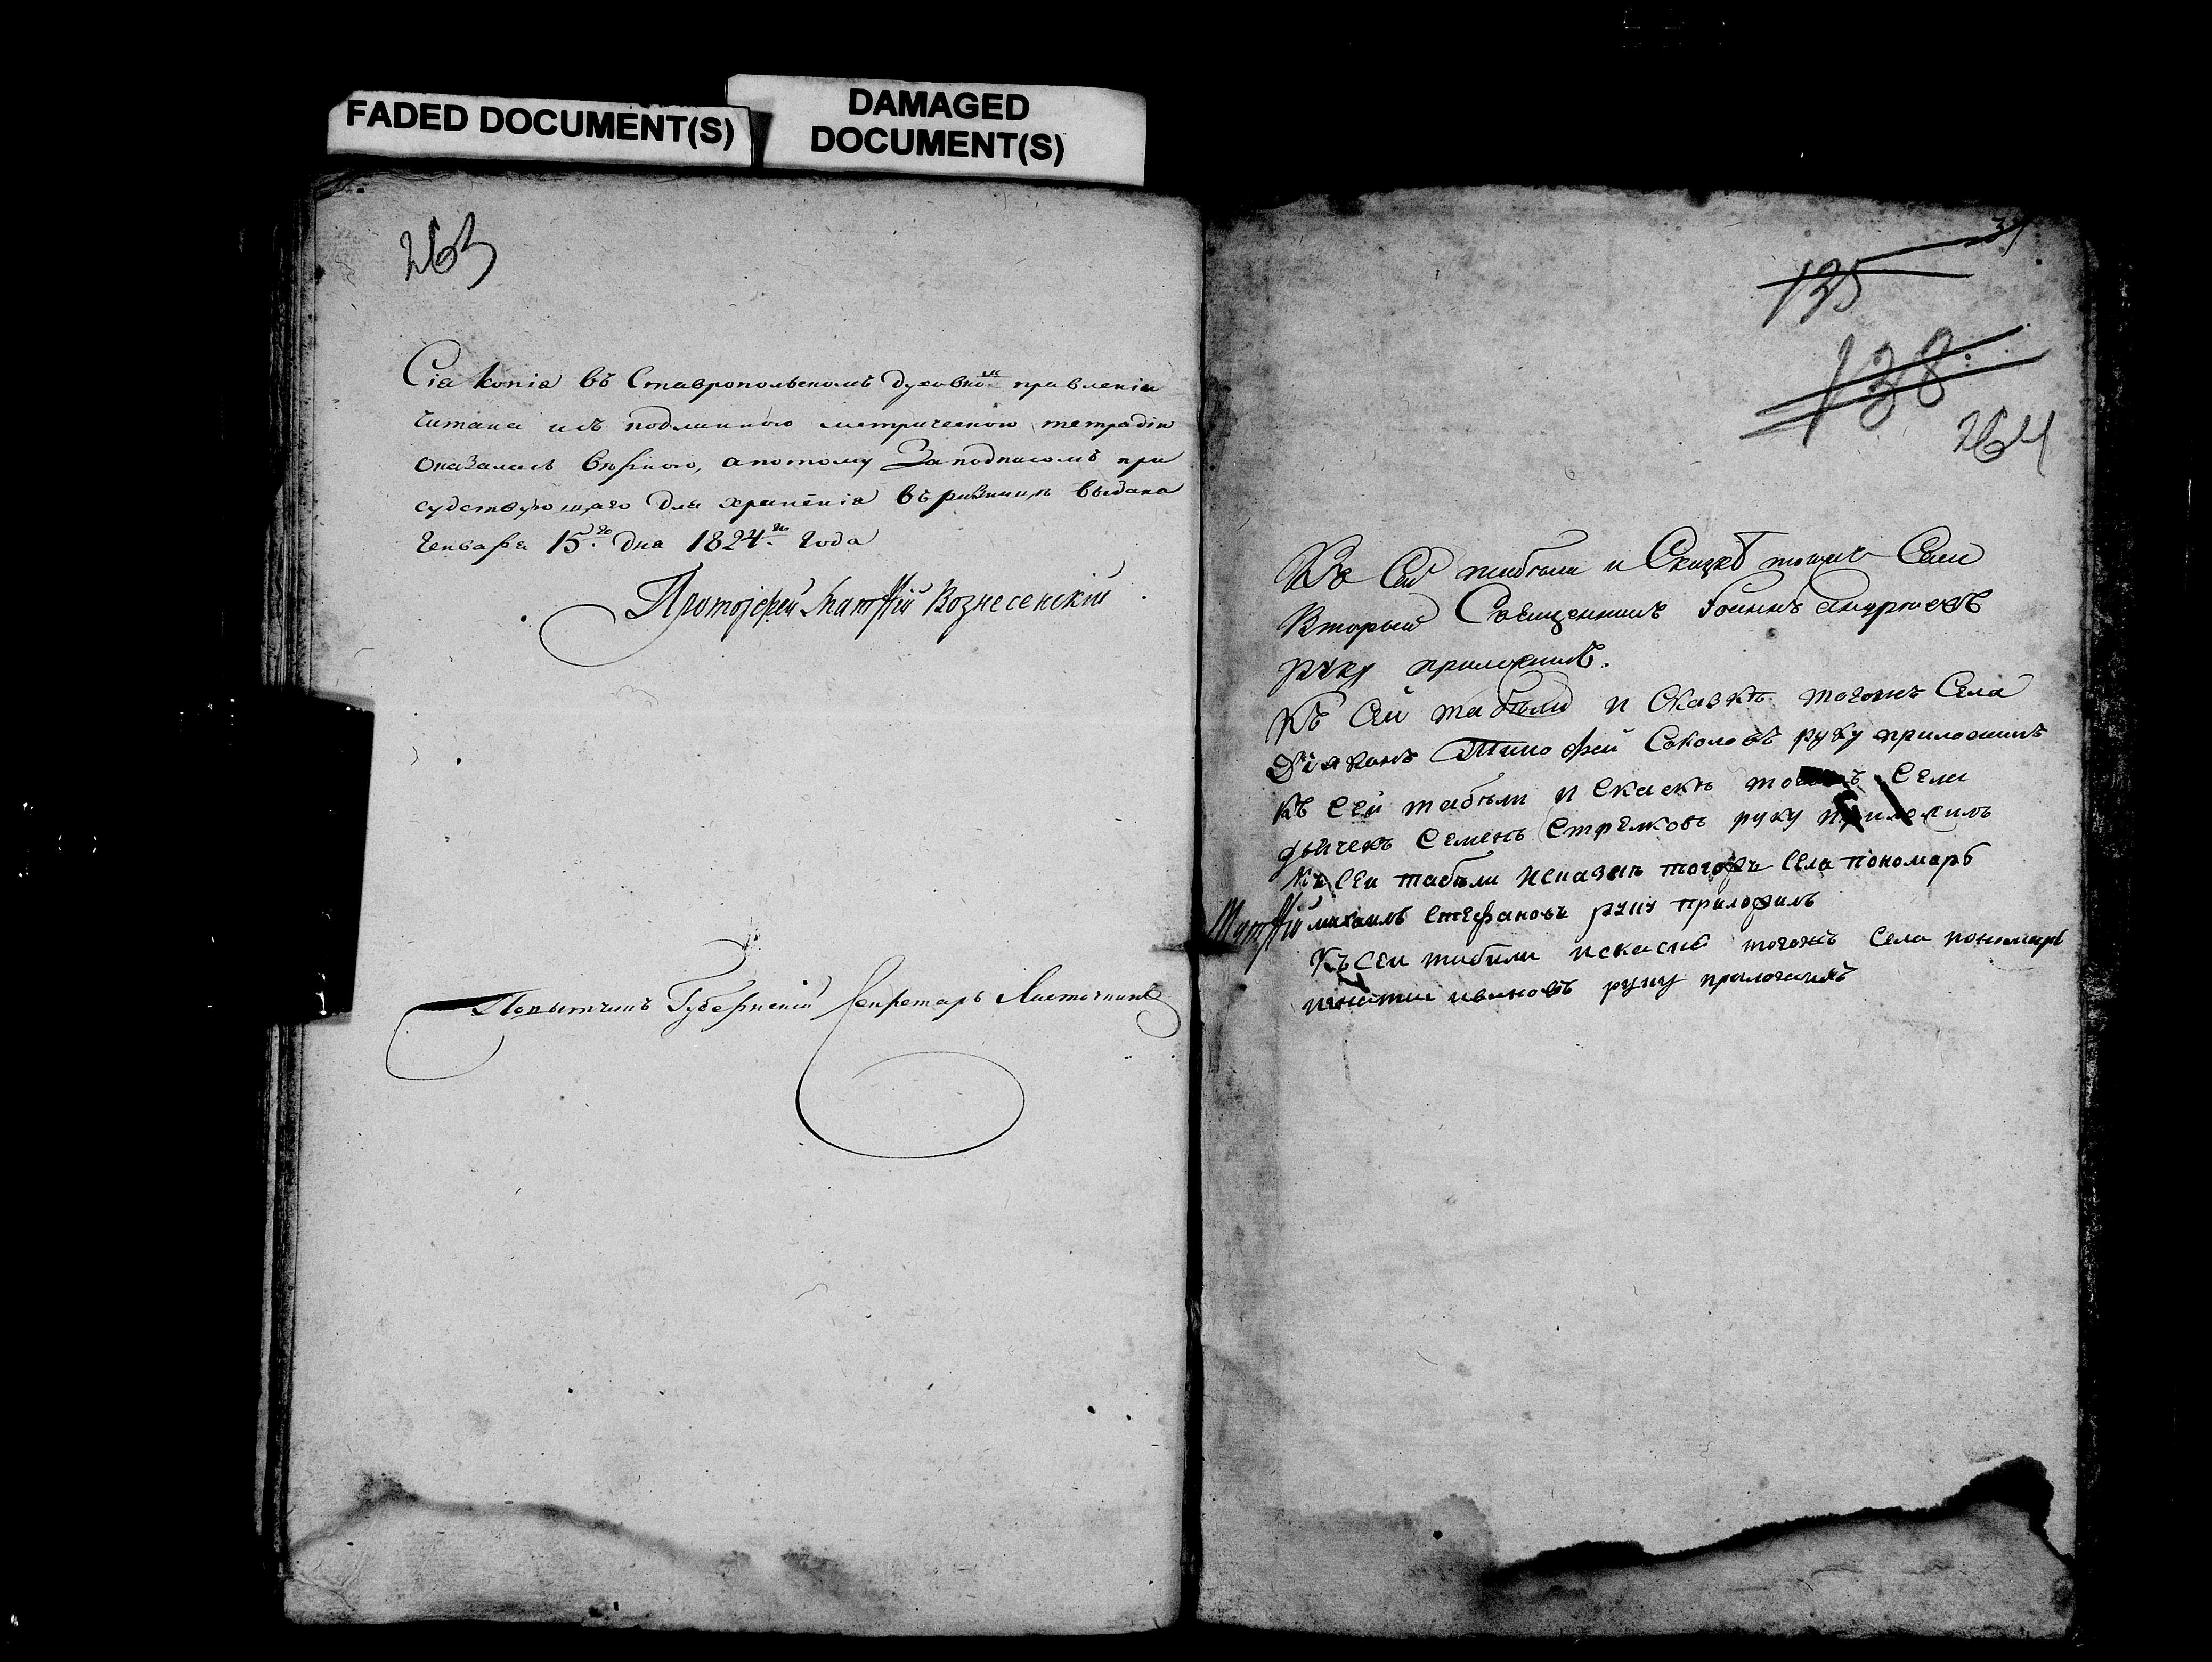 FADED DOCUMENT(S)
DAMAGED
DOCUMENT(S)
263
Сіа копіа въ Ставропольскомъ духовно.мъ правленіи
читана и съ подлинною метрическою тетрадію
оказалась вѣрною, апотому Заподписомъ при
судствующаго для храненіа въ ризницѣ выдана
Генваря 15.го дня 1824.го года
Протоіерей Матѳій Вознесенскій
Повытчикъ Губернскій Секретарь Ласточкинъ
135
138.
264
Къ Сей табѣли и Сказкѣ тогожъ Села
Вторый Священникъ Іоаннъ
руку приложилъ.
Къ Сей табѣли и Сказкѣ тогожъ Села
Діаконъ Тимофей Соколовъ руку приложилъ
къ сей табѣли и скаскѣ Села
дьячекъ Семенъ Стрелковъ руку приложилъ
къ сеи табѣли исказкѣ тогожъ села пономарь
Матѳій
михаилъ стефановъ руку приложилъ
Къ сеи табили искаскѣ тогожъ села пономарь
игнатии ивановъ руку приложилъ